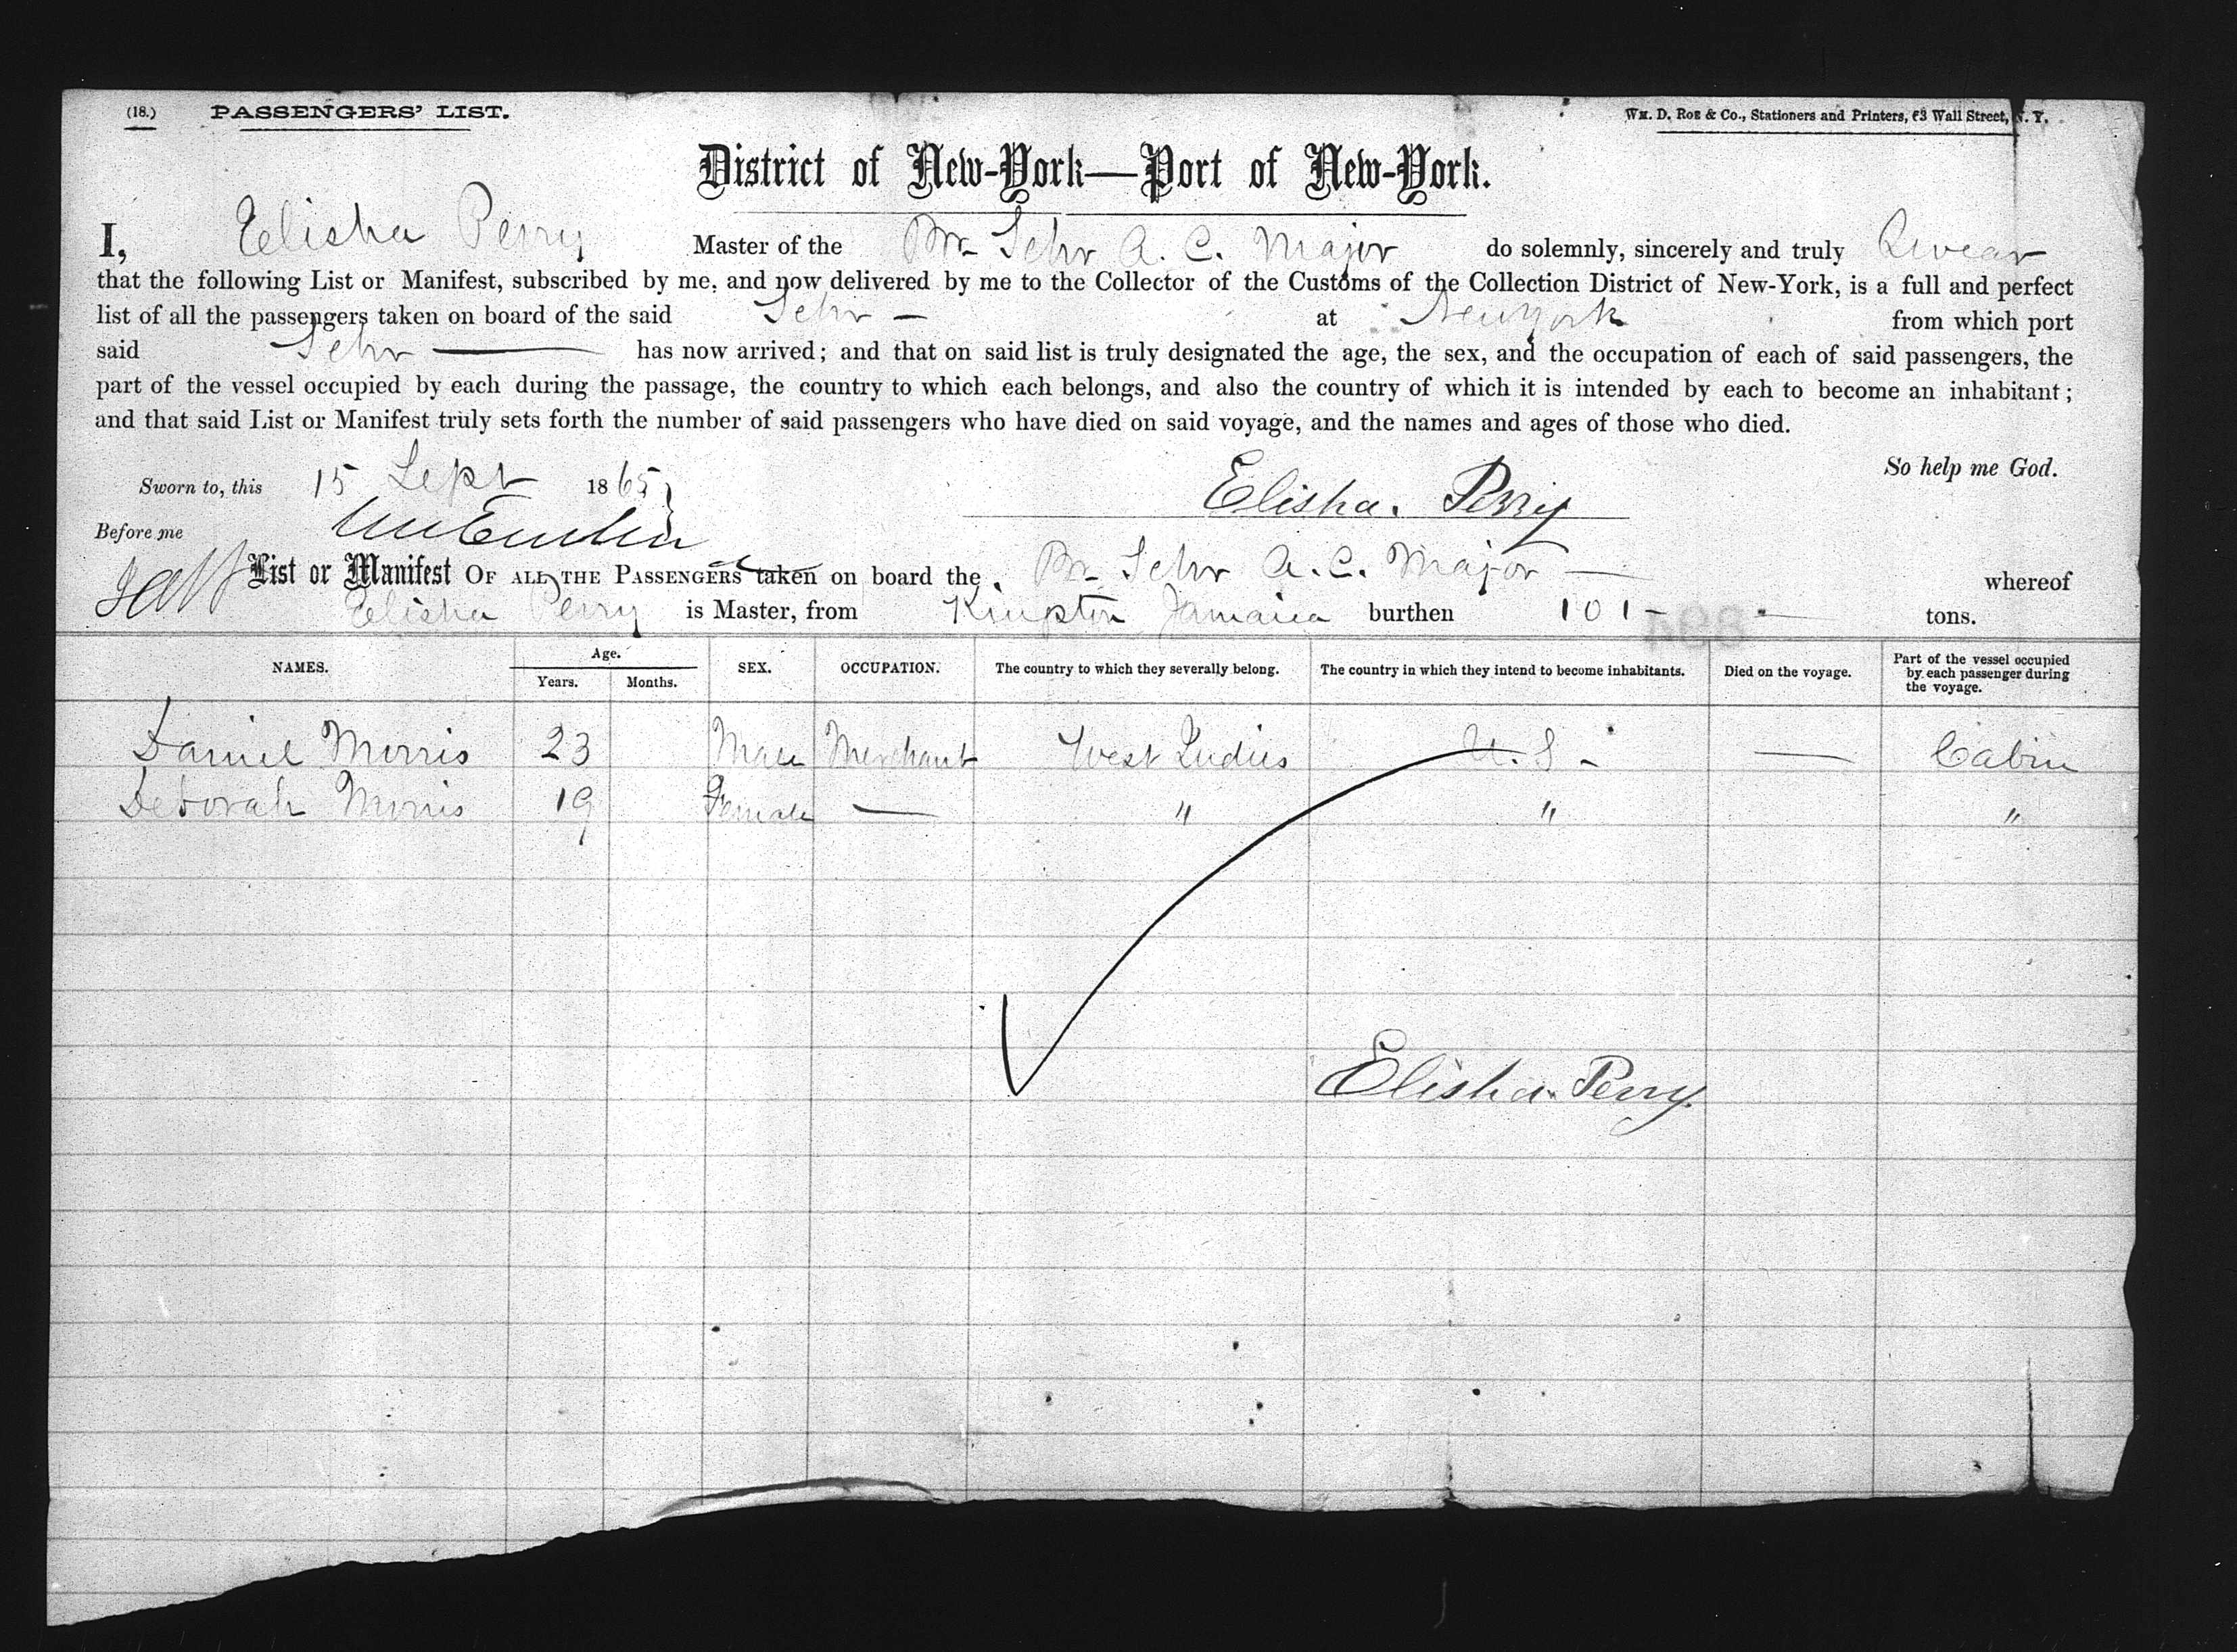 (18.) PASSENGERS' LIST. Wm. D. Roe & Co., Stationers and Printers, 63 Wall Street, N. Y.
District of New-York—Port of New-York.
I, Elisha Perry Master of the Br Schr A. C. Major do solemnly, sincerely and truly Swear
that the following List or Manifest, subscribed by me, and now delivered by me to the Collector of the Customs of the Collection District of New-York, is a full and perfect
list of all the passengers taken on board of the said Schr — at New York from which port
said Schr — has now arrived; and that on said list is truly designated the age, the sex, and the occupation of each of said passengers, the
part of the vessel occupied by each during the passage, the country to which each belongs, and also the country of which it is intended by each to become an inhabitant;
and that said List or Manifest truly sets forth the number of said passengers who have died on said voyage, and the names and ages of those who died.
So help me God.
Sworn to, this 15 Sept 1865 Elisha. Perry
Before me
List or Manifest OF ALL THE PASSENGERS taken on board the Br Schr A. C. Major — whereof
Elisha Perry is Master, from Kingston Jamaica burthen 101 — tons.
NAMES. Age. Years. Months. SEX. OCCUPATION. The country to which they severally belong. The country in which they intend to become inhabitants. Died on the voyage. Part of the vessel occupied by each passenger during the voyage.
Daniel Morris 23 Male Merchant West Indies U. S - — Cabin
Deborah Morris 19 Female — " " "
Elisha. Perry